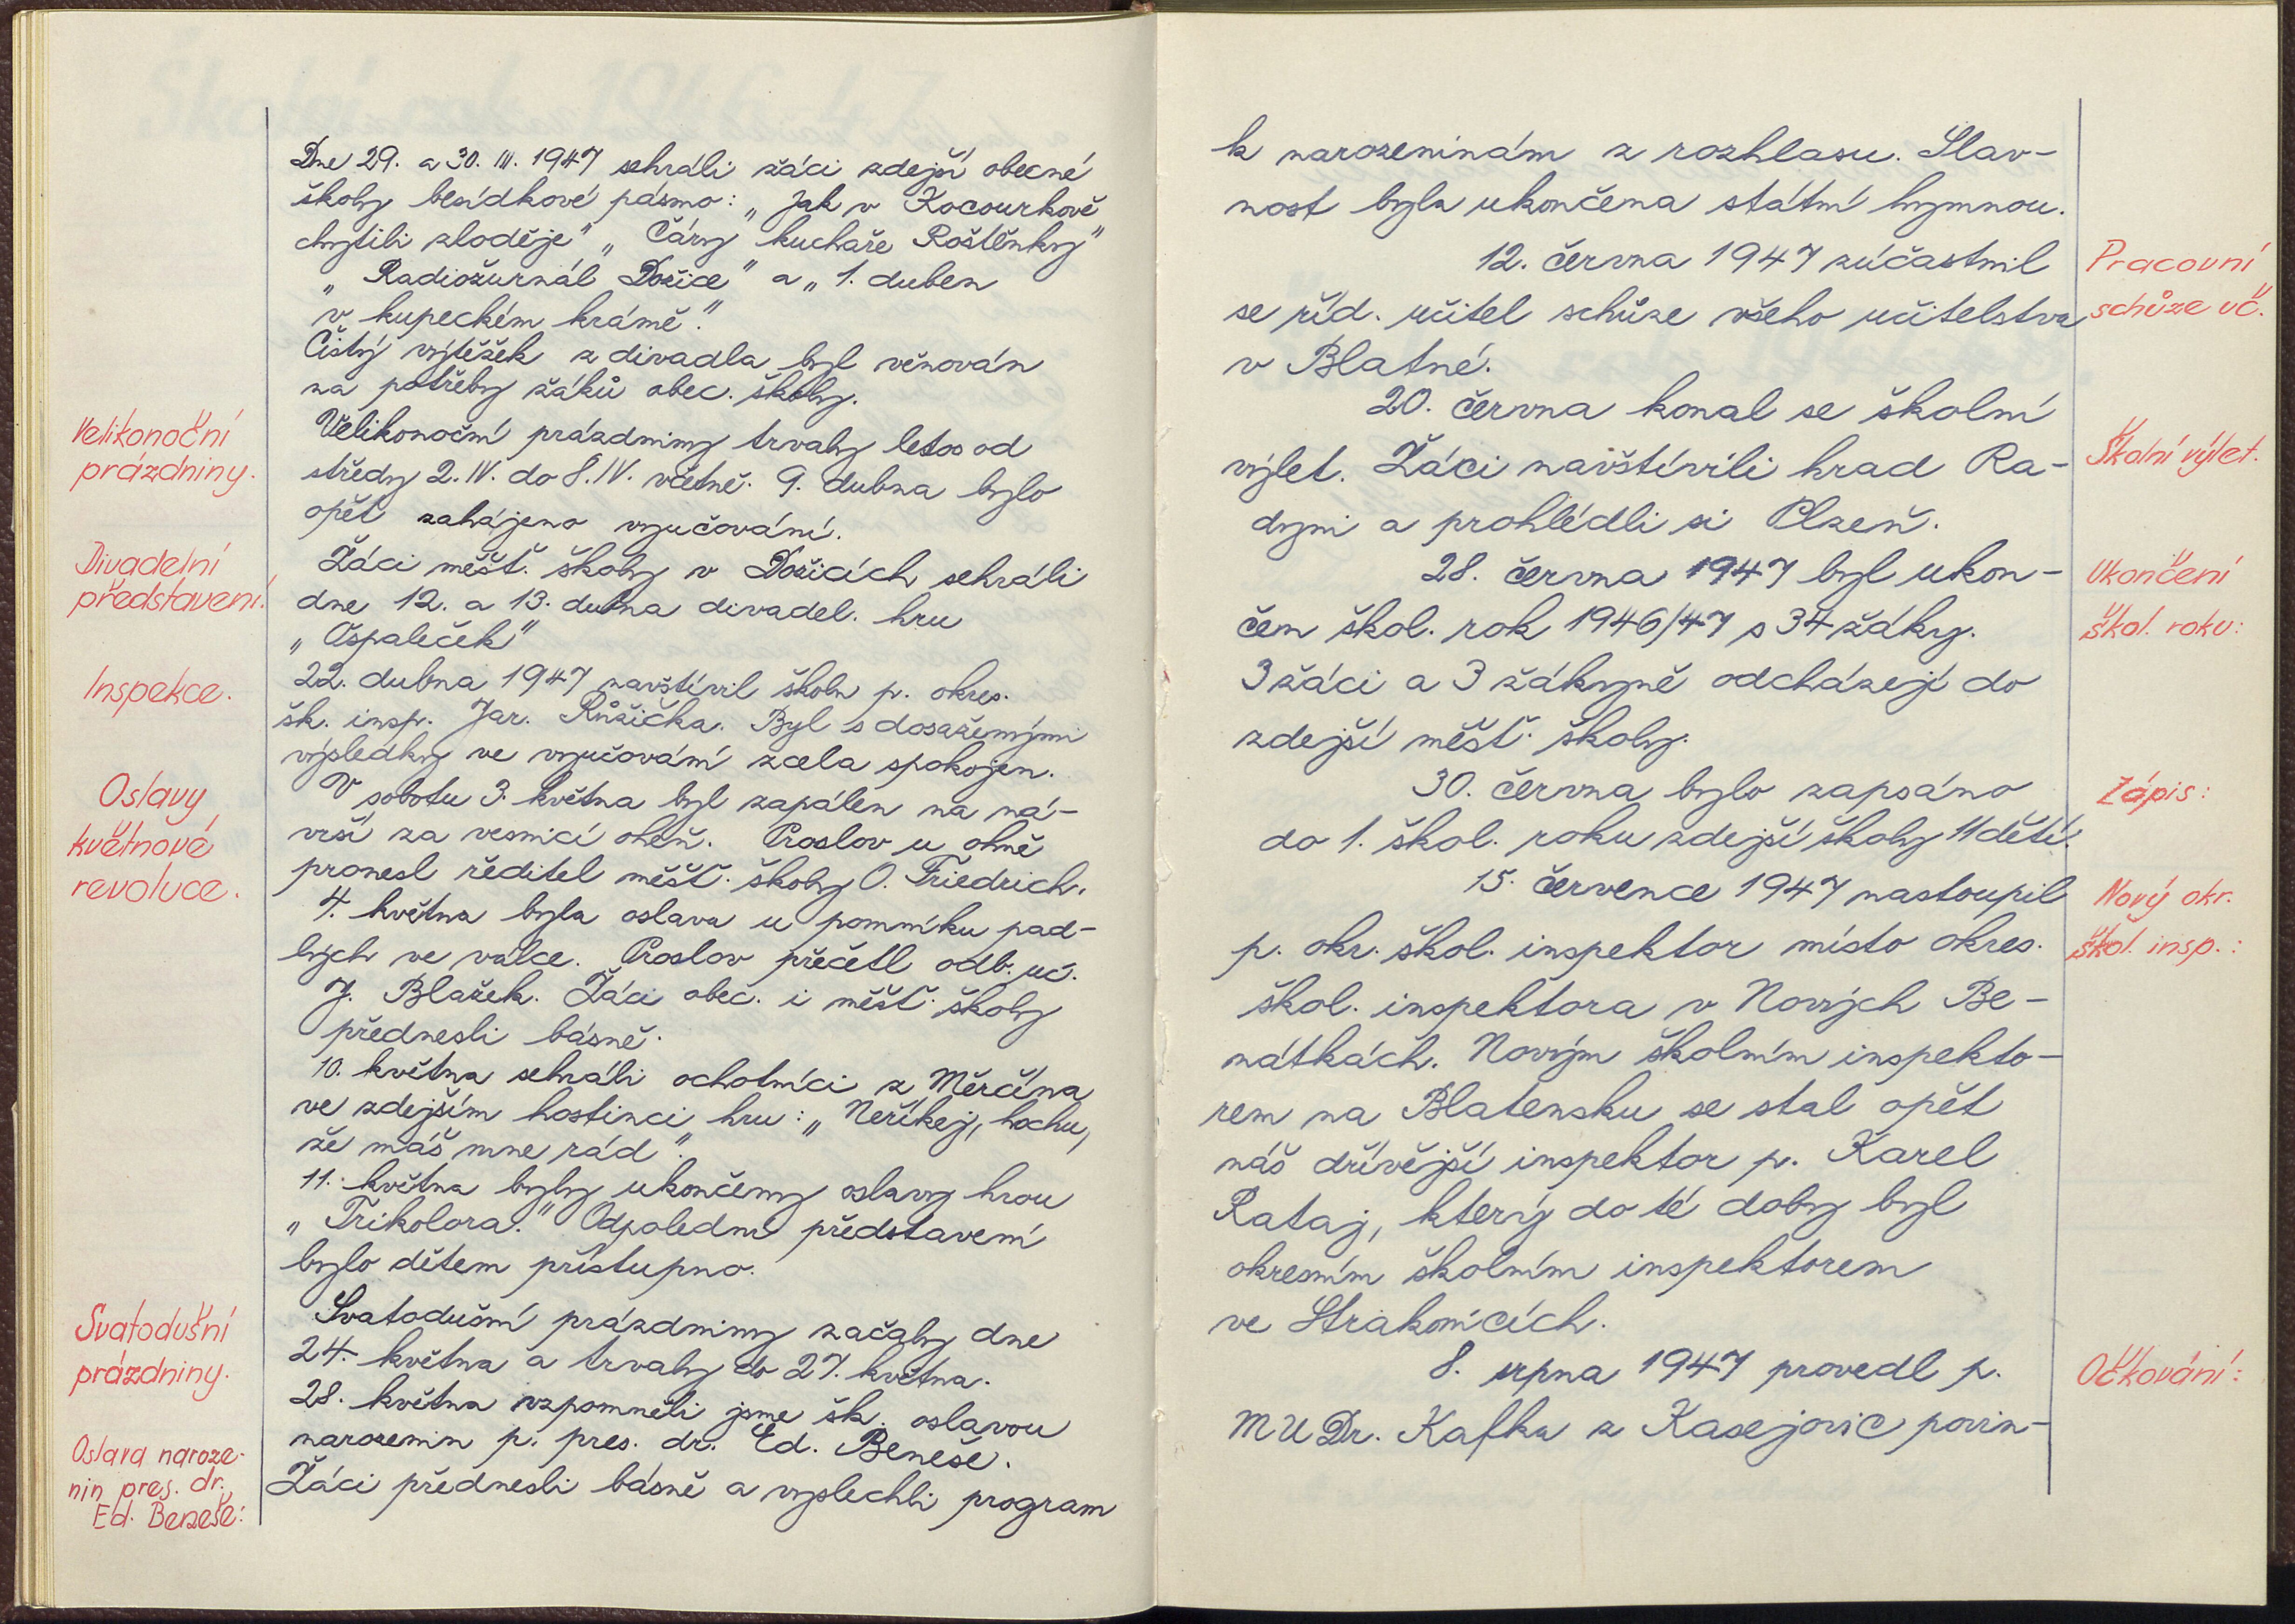 Dne 29. a 30. III. 1947 sehráli žáci zdejší obecné
školy besídkové pásmo: „Jak v Kocourkově
chytili zloděje" „Čáry kuchaře Roštěnky"
„Radiožurnál Dožice" a „1. duben
v kupeckém krámě."
Čistý výtěžek z divadla byl věnován
na potřeby žáků obec. školy.
Velikonoční
prázdniny.
Velikonoční prázdniny trvaly letos od
středy 2. IV. do 8. IV. včetně. 9. dubna bylo
opět zahájeno vyučování.
Divadelní
představení.
Žáci měšť. školy v Dožicích sehráli
dne 12. a 13. dubna divadel. hru
„Ospaleček"
Inspekce.
22. dubna 1947 navštívil školu p. okres.
šk. insp. Jar. Růžička. Byl s dosaženými
výsledky ve vyučování zcela spokojen.
Oslavy
květnové
revoluce.
V sobotu 3. května byl zapálen na ná-
vrší za vesnicí oheň. Proslov u ohně
pronesl ředitel měšť. školy O. Friedrich.
4. května byla oslava u pomníku pad-
lých ve válce. Proslov přečetl odb. uč.
J. Blažek. Žáci obec. i měšť. školy
přednesli básně.
10. května sehráli ochotníci z Měrčína
ve zdejším hostinci hru: „Neříkej, hochu,
že máš mne rád".
11. května byly ukončeny oslavy hrou
„Trikolora." Odpolední představení
bylo dětem přístupno.
Svatodušní
prázdniny.
Svatodušní prázdniny začaly dne
24. května a trvaly do 27. května.
Oslava naroze-
nin pres. dr.
Ed. Beneše:
28. května vzpomněli jsme šk. oslavou
narozenin p. pres. dr. Ed. Beneše.
Žáci přednesli básně a vyslechli program
k narozeninám z rozhlasu. Slav-
nost byla ukončena státní hymnou.
Pracovní
schůze uč.
12. června 1947 zúčastnil
se říd. učitel schůze všeho učitelstva
v Blatné.
Školní výlet.
20. června konal se školní
výlet. Žáci navštívili hrad Ra-
dyni a prohlédli si Plzeň.
Ukončení
škol. roku:
28. června 1947 byl ukon-
čen škol. rok 1946/47 s 34 žáky.
3 žáci a 3 žákyně odcházejí do
zdejší měšť. školy.
Zápis:
30. června bylo zapsáno
do 1. škol. roku zdejší školy 11 dětí.
Nový okr.
škol. insp.:
15. července 1947 nastoupil
p. okr. škol. inspektor místo okres.
škol. inspektora v Nových Be-
nátkách. Novým školním inspekto-
rem na Blatensku se stal opět
náš dřívější inspektor p. Karel
Rataj, který do té doby byl
okresním školním inspektorem
ve Strakonicích.
Očkování:
8. srpna 1947 provedl p.
MUDr. Kafka z Kasejovic povin-